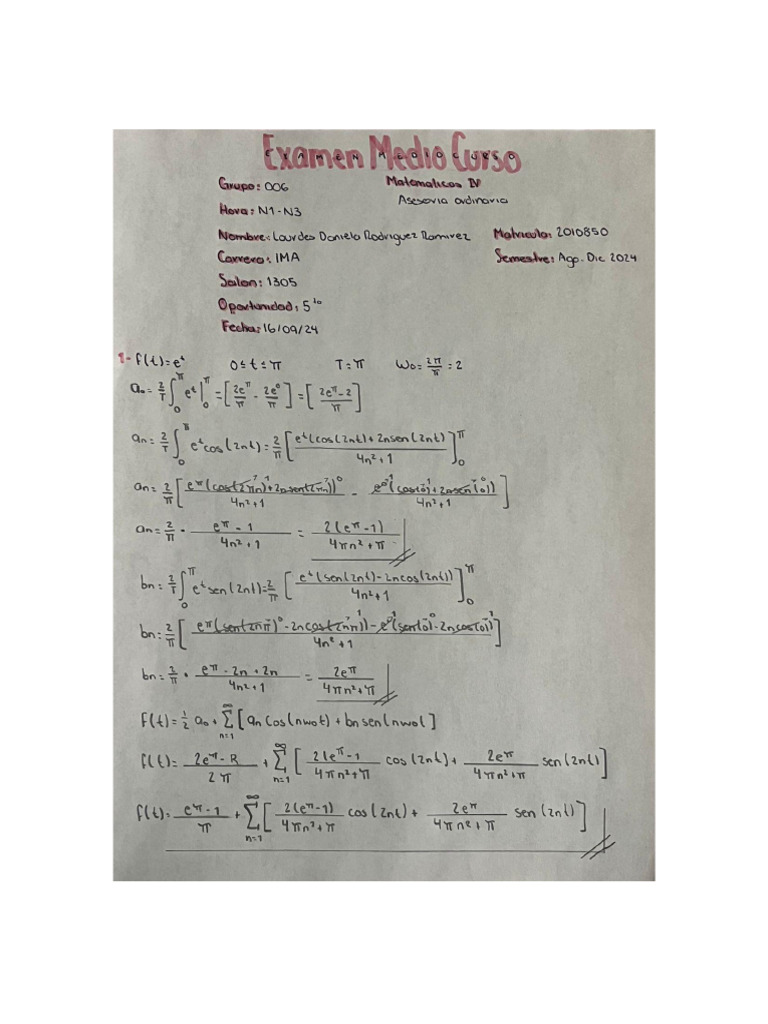 Examen Medio Curso
EXAMEN MEDIO CURSO
Grupo: 006 Matematicas IV
Asesoria ordinaria
Hora: N1-N3
Nombre: Lourdes Daniela Rodriguez Ramirez Matricula: 2010850
Carrera: IMA Semestre: Ago-Dic 2024
Salon: 1305
Oportunidad: 5ta
Fecha: 16/09/24
1- f(t)=e^t 0≤t≤π T=π Wo=2π/π=2
ao=2/T ∫_0^π e^t |_0^π =[2e^π/π - 2e^0/π]=[(2e^π-2)/π]
an=2/T ∫_0^π e^t cos(2nt)=2/π [e^t(cos(2nt)+2nsen(2nt)/(4n²+1)]_0^π
an=2/π [e^π(cos(2πn)^1+2nsen(2πn))^0/(4n²+1) - e^0^1(cos(0)^1+2nsen(0)^0)/(4n²+1)]
an=2/π · (e^π-1)/(4n²+1) = 2(e^π-1)/(4πn²+π)
bn=2/T ∫_0^π e^t sen(2nt)=2/π [e^t(sen(2nt)-2ncos(2nt))/(4n²+1)]_0^π
bn=2/π [e^π(sen(2nπ)^0-2ncos(2nπ)^1)-e^0^1(sen(0)^0-2ncos(0)^1)/(4n²+1)]
bn=2/π · (e^π-2n+2n)/(4n²+1) = 2e^π/(4πn²+π)
f(t)=1/2 ao+∑_{n=1}^∞ [an cos(nwot)+bn sen(nwot]
f(t)=(2e^π-2)/2π +∑_{n=1}^∞ [2(e^π-1/(4πn²+π) cos(2nt)+ 2e^π/(4πn²+π) sen(2nt)]
f(t)=(e^π-1)/π +∑_{n=1}^∞ [2(e^π-1)/(4πn²+π) cos(2nt)+ 2e^π/(4πn²+π) sen(2nt)]